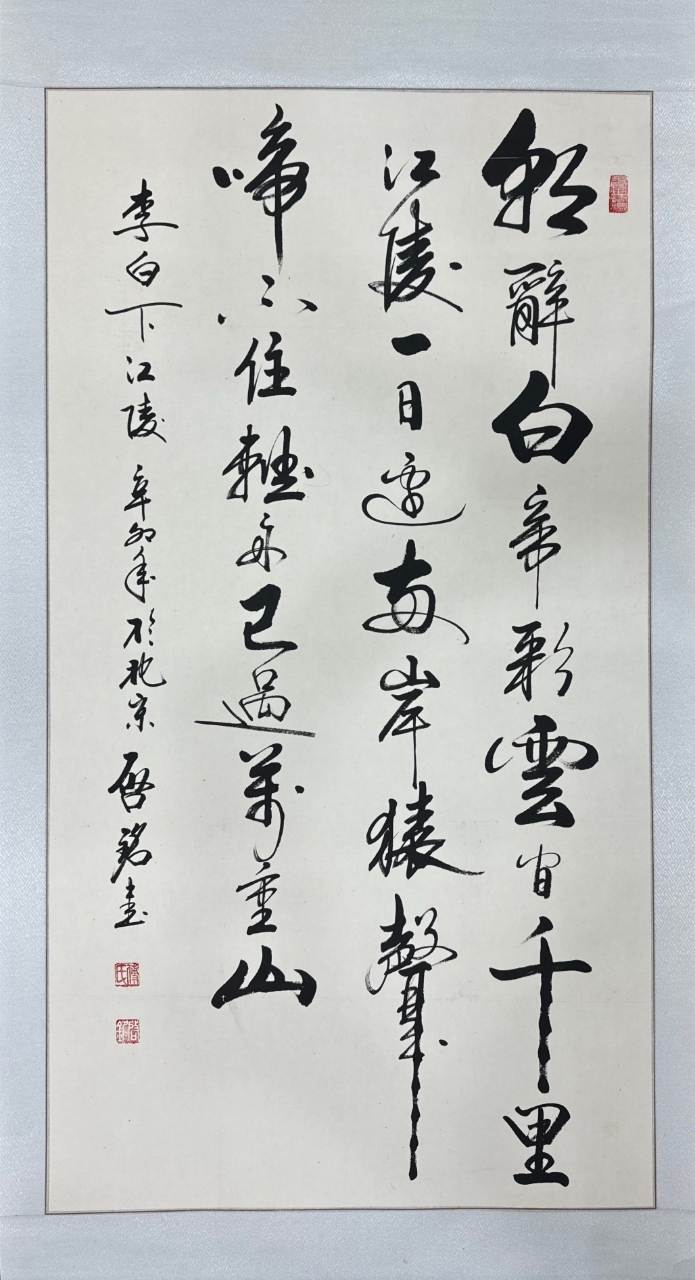 朝辭白帝彩雲間千里
江陵一日還兩岸猿聲
啼不住輕舟已過萬重山
李白下江陵 辛卯年於北京 啓銘書